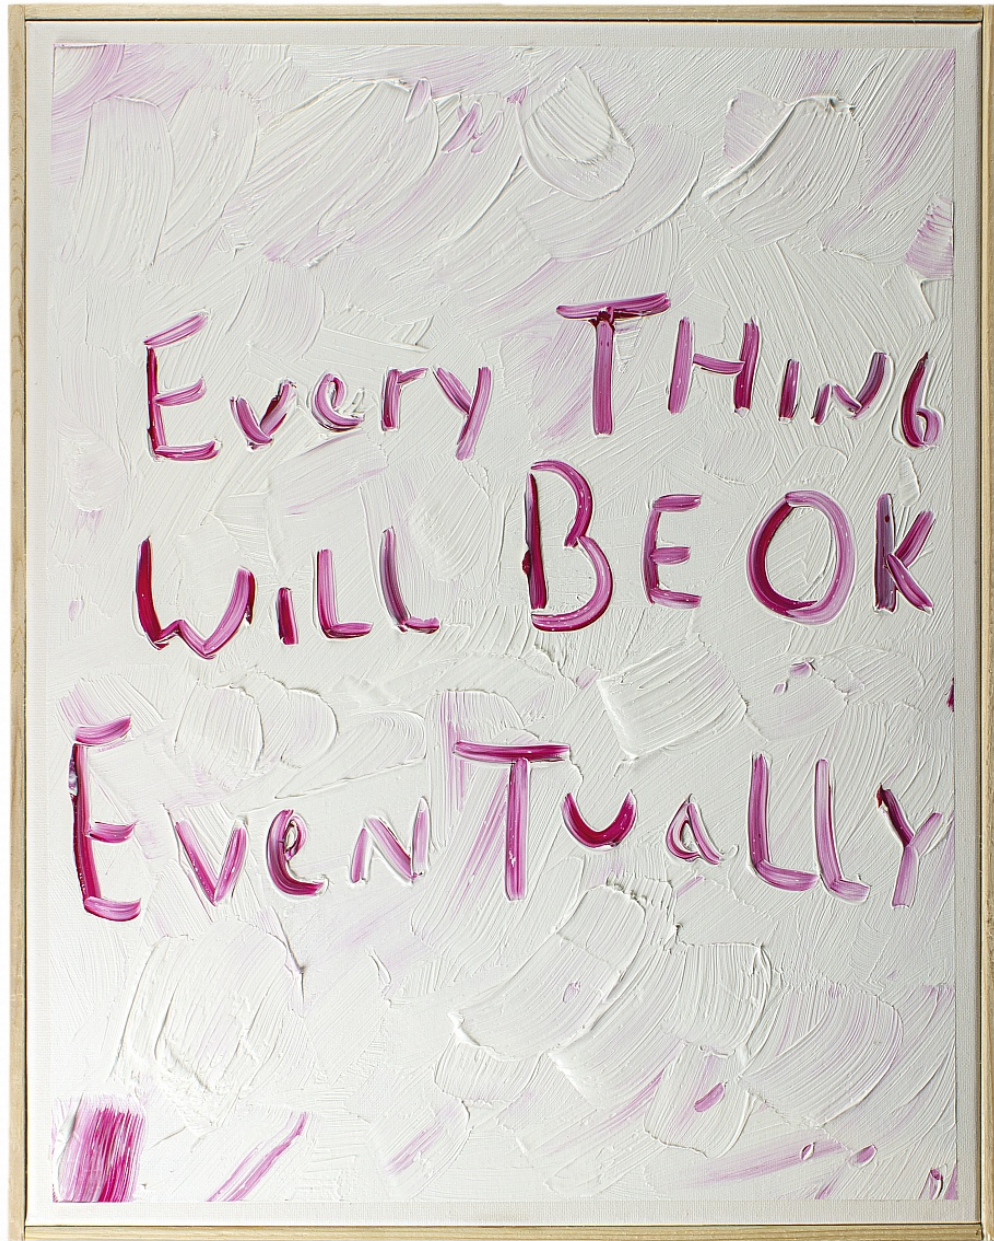 Every THING
WiLL BE OK
EvenTuaLLY